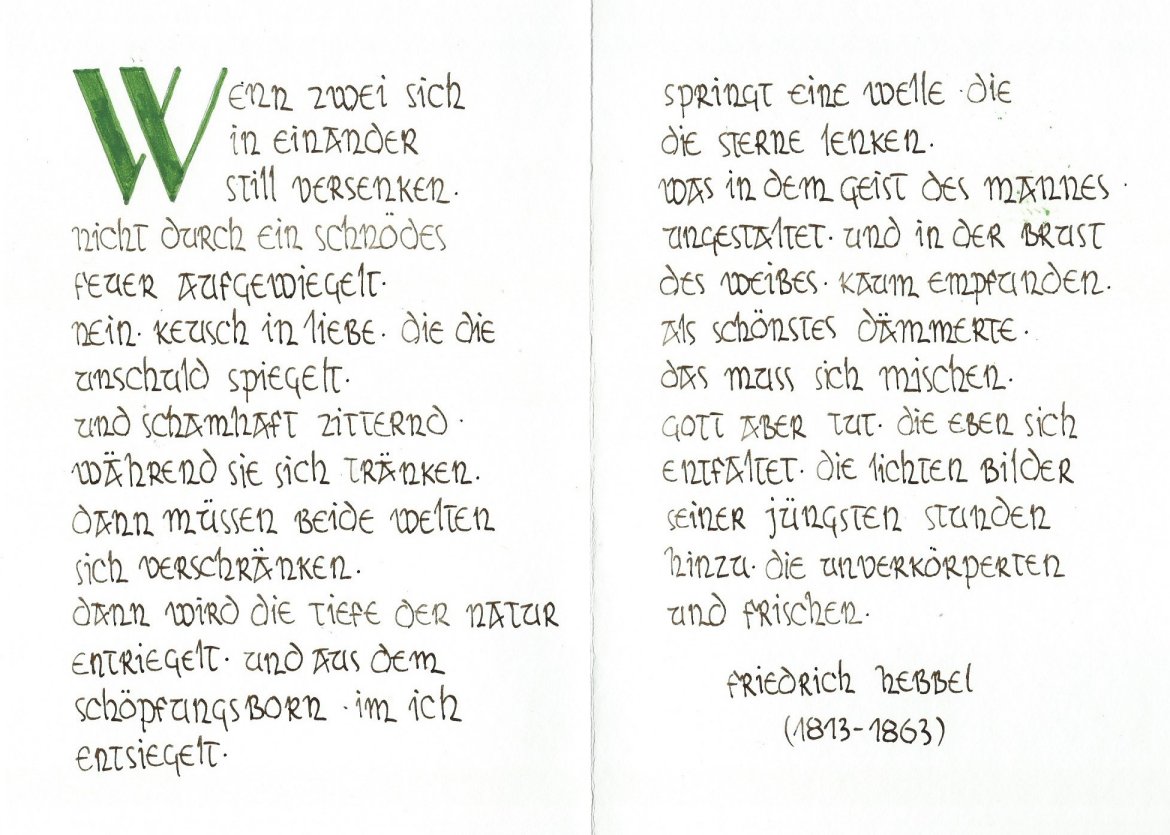 Wenn zwei sich
in einander
still versenken·
nicht durch ein schnödes
feuer aufgewiegelt·
nein· keusch in liebe· die die
unschuld spiegelt·
und schamhaft zitternd·
während sie sich tränken·
dann müssen beide welten
sich verschränken·
dann wird die tiefe der natur
entriegelt· und aus dem
schöpfungsborn· im ich
entsiegelt·
springt eine welle· die
die sterne lenken·
was in dem geist des mannes·
ungestaltet· und in der brust
des weibes· kaum empfunden·
als schönstes dämmerte·
das muss sich mischen·
gott aber tut· die eben sich
entfaltet· die lichten bilder
seiner jüngsten stunden
hinzu· die unverkörperten
und frischen·
friedrich hebbel
(1813-1863)